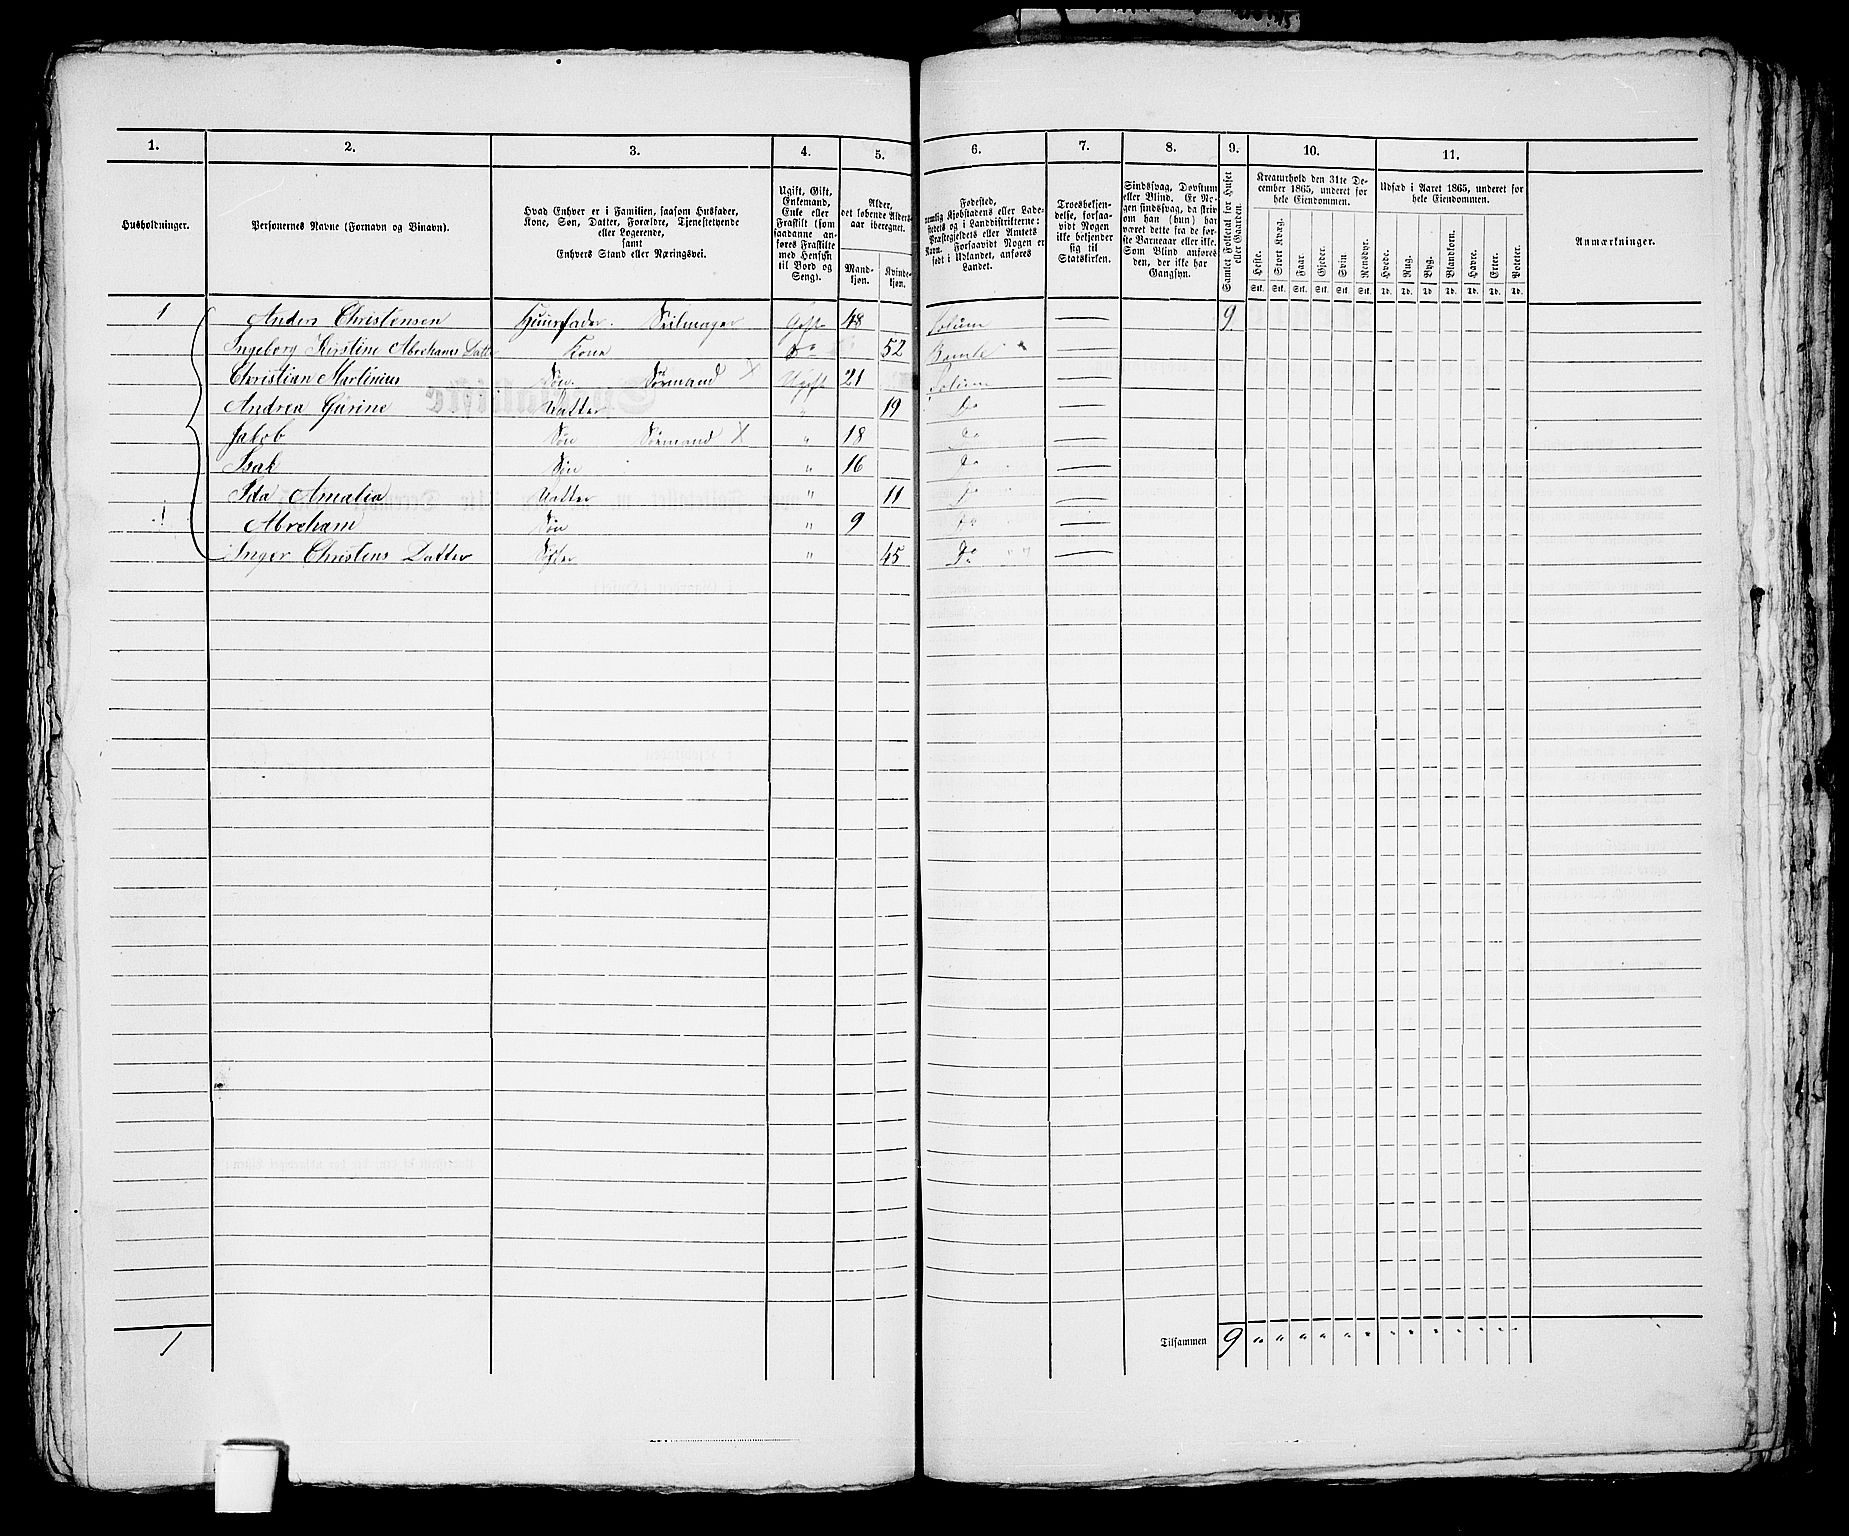 1. 2. 3. 4. 5. 6. 7. 8. 9. 10. 11.
Husholdninger.
Personernes Navne (Fornavn og Binavn).
Hvad Enhver er i Familien, saasom Husfader,
Kone, Søn, Datter, Forældre, Tjenestetyende
eller Logerende,
samt
Enhvers Stand eller Næringsvei.
Ugift, Gift,
Enkemand,
Enke eller
Fraskilt (som
saadanne an-
føres Fraskilte
med Hensyn
til Bord og
Seng).
Alder,
det løbende Alders-
aar iberegnet.
Mand-
kjøn.
Kvinde-
kjøn.
Fødested,
nemlig Kjøbstadens eller Lade-
stedets og i Landdistrikterne:
Præstegjeldets eller Amtets
Navn. Forsaavidt Nogen er
født i Udlandet, anføres
Landet.
Troesbekjen-
delse, forsaa-
vidt Nogen
ikke bekjender
sig til
Statskirken.
Sindssvag, Døvstum
eller Blind. Er No-
gen sindssvag, da skriv
om han (hun) har
været dette fra de før-
ste Barneaar eller ikke.
Som Blind anføres
den, der ikke har
Gangsyn.
Samlet Folketal for Huset
eller Gaarden.
Kreaturhold den 31te De-
cember 1865, underet for
hele Eiendommen.
Heste. Stort Kvæg. Faar. Gjeder. Svin Rensdyr.
Stk. Stk. Stk. Stk. Stk. Stk.
Udsæd i Aaret 1865, underet for
hele Eiendommen.
Hvede. Rug. Byg. Blandkorn. Havre. Erter. Poteter.
Td. Td. Td. Td. Td. Td. Td.
Anmærkninger.
1 Anders Christensen Huusfader. Seilmager Gift 48 Solum 9
Ingeborg Kirstine Abrahams Datter Kone Do 52 Bamle
Christian Martinius Søn. Sømand X Ugift 21 Solum
Andrea Gurine Datter " 19 Do
Jakob Søn Sømand X " 18 Do
Isak Søn " 16 Do
Ida Amalia Datter " 11 Do
1 Abraham Søn " 9 Do
Inger Christens Datter " 45 Do
1 Tilsammen 9 " " " " " " " " " " " " "